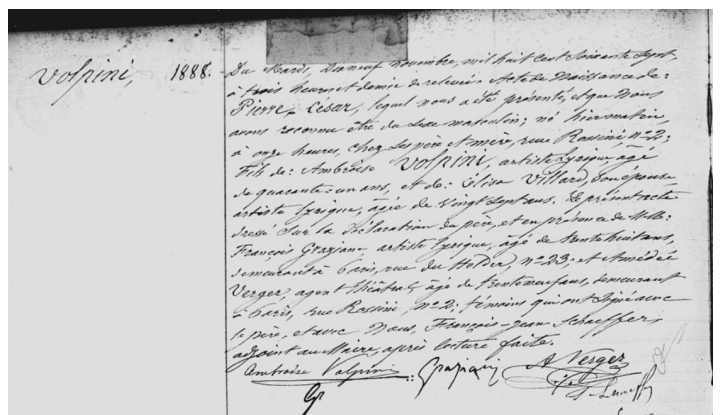 Volpini, 1888.
Du Mardi, dixneuf novembre, mil huit cent soixante sept,
à trois heures et demie de relevée. Acte de Naissance de:
Pierre, César, lequel nous a été présenté, et que Nous
avons reconnu être du sexe masculin; né hier matin,
à onze heures, chez ses père et mère, rue Rossini, no 2;
Fils de: Ambroise Volpini, artiste lyrique, âgé
de quarante-un ans, et de: Elise Villard, son épouse,
artiste lyrique, âgée de vingt sept ans. Le présent acte
dressé sur la déclaration du père, et en présence de MM:
François Graziani artiste lyrique, âgé de trente huit ans,
demeurant à Paris, rue du Helder, no 23; et Amédée
Verger, agent théâtral, âgé de trente neuf ans, demeurant
à Paris, rue Rossini, no 2; témoins qui ont signé avec
le père, et avec Nous, François-Jean Schaeffer,
adjoint au Maire, après lecture faite.
Ambroise Volpini Graziani A. Verger